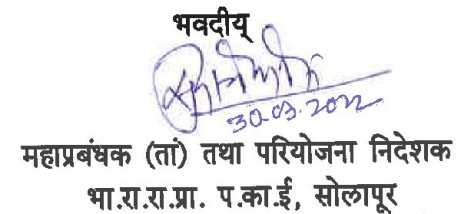 भवदीय्
30.03.2022
महाप्रबंधक (तां) तथा परियोजना निदेशक
भा.रा.रा.प्रा. प.का.ई, सोलापूर